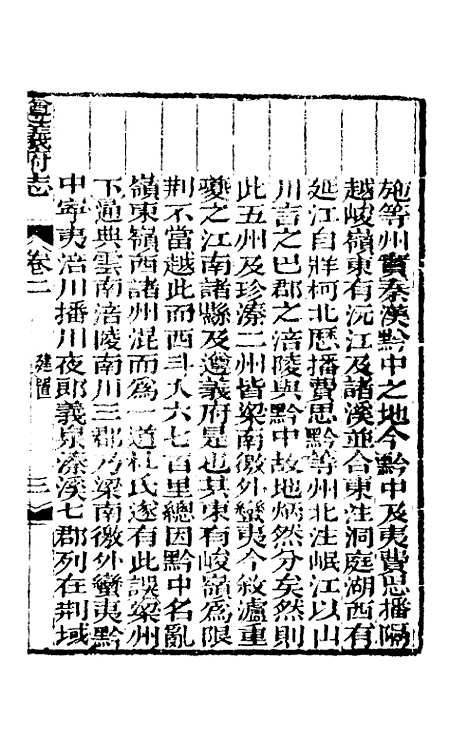 施等州實秦漢黔中之地今黔中及夷費思播隔
越峻嶺東有沅江及諸溪並合東注洞庭湖西有
延江自牂柯北厯播費思黔等州北注岷江以山
川言之巴郡之涪陵與黔中故地炳然分矣然則
此五州及珍溱二州皆梁南徼外蠻夷今敘瀘重
夔之江南諸縣及遵義府是也其東有峻嶺爲限
荆不當越此而西斗入六七百里總因黔中名亂
嶺東嶺西諸州混而爲一道杜氏遂有此誤梁州
下適典雲南涪陵南川三郡乃梁南徼外蠻夷黔
中寜夷涪川播川夜郎義泉溱溪七郡列在荆域
遵義府志
卷二
建置
三